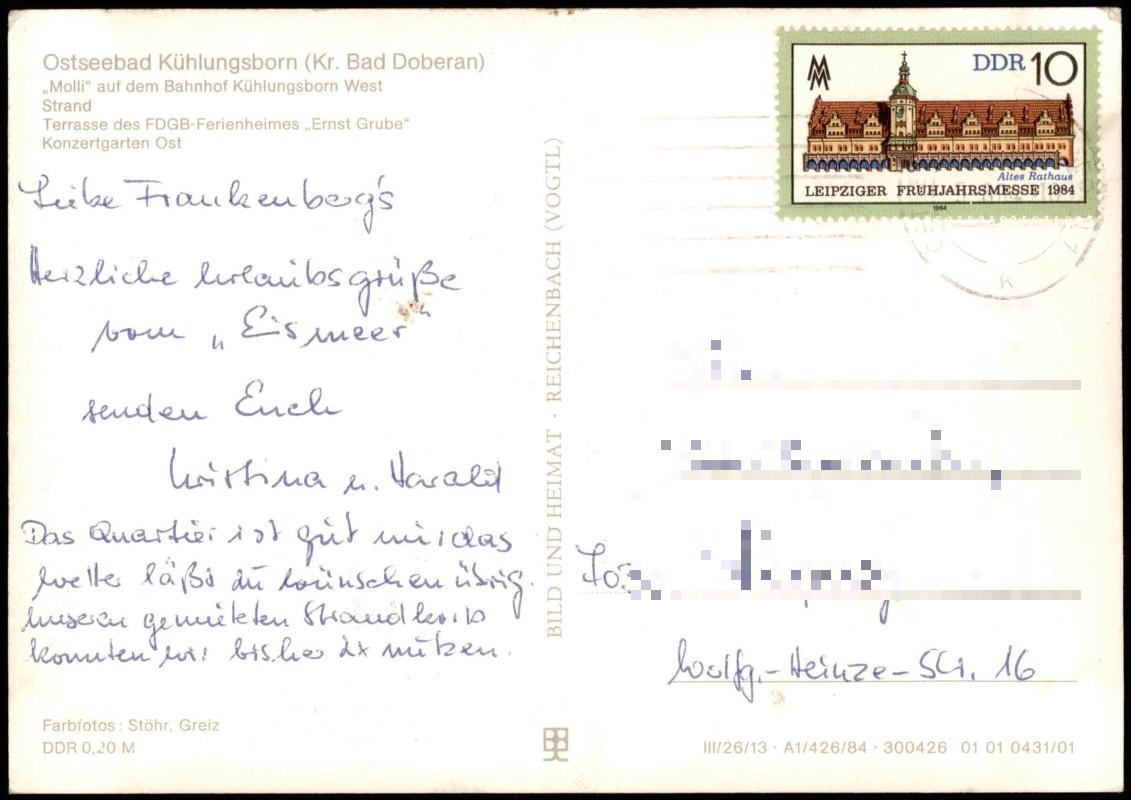 Ostseebad Kühlungsborn (Kr. Bad Doberan)
„Molli“ auf dem Bahnhof Kühlungsborn West
Strand
Terrasse des FDGB-Ferienheimes „Ernst Grube“
Konzertgarten Ost
Liebe Frankenberg's
Herzliche Urlaubsgrüße
vom „Eismeer“
senden Euch
Kristina u. Harald
Das Quartier ist gut nur das
Wetter läßt zu wünschen übrig.
Unseren gemieteten Strandkorb
konnten wir bisher 2x nutzen.
Farbfotos: Stöhr, Greiz
DDR 0,20 M
BILD UND HEIMAT · REICHENBACH (VOGTL)
DDR 10
Altes Rathaus
LEIPZIGER FRÜHJAHRSMESSE 1984
1984
K
Wolfg.-Heinze-Str. 16
III/26/13 · A1/426/84 · 300426 01 01 0431/01